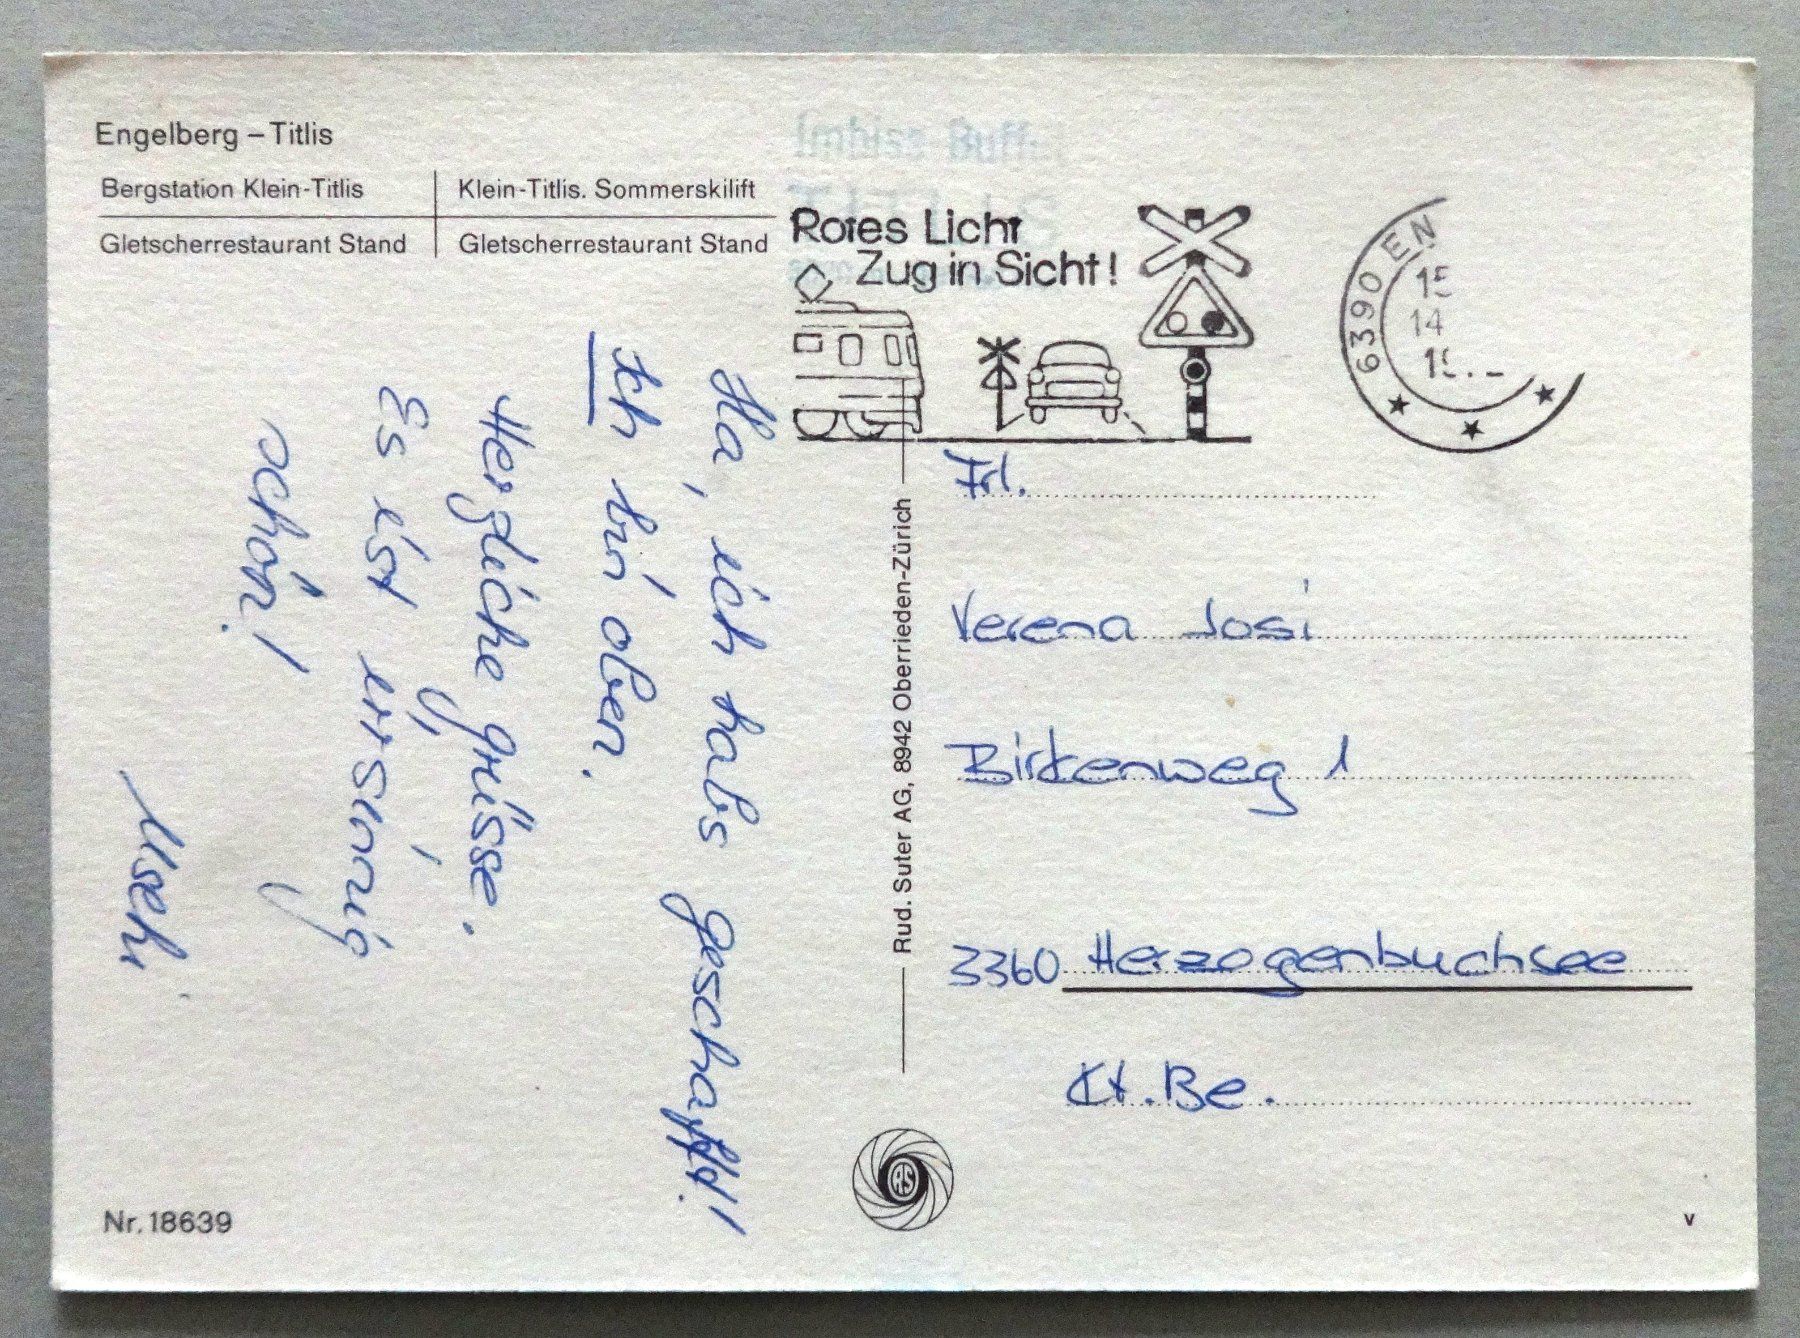 Engelberg – Titlis
Bergstation Klein-Titlis
Klein-Titlis. Sommerskilift
Gletscherrestaurant Stand
Gletscherrestaurant Stand
Imbiss Buff
TITLIS
Rotes Licht
Zug in Sicht!
6390 EN
15
14
Ha, ich habs geschafft!
Ich bin oben.
Herzliche grüsse.
Es ist irrsinnig
schön!
Rud. Suter AG, 8942 Oberrieden-Zürich
Frl.
Verena Josi
Birkenweg 1
3360 Herzogenbuchsee
Kt. Be.
RS
Nr. 18639
v